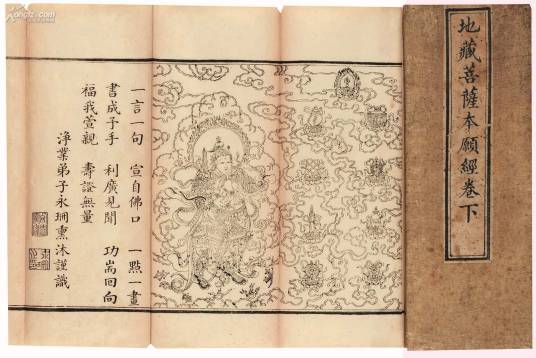 地藏菩薩本願經卷下
一言一句 宣自佛口 一點一畫
書成予手 利廣見聞 功耑回向
福我萱親 壽證無量
淨業弟子永珊熏沐謹識